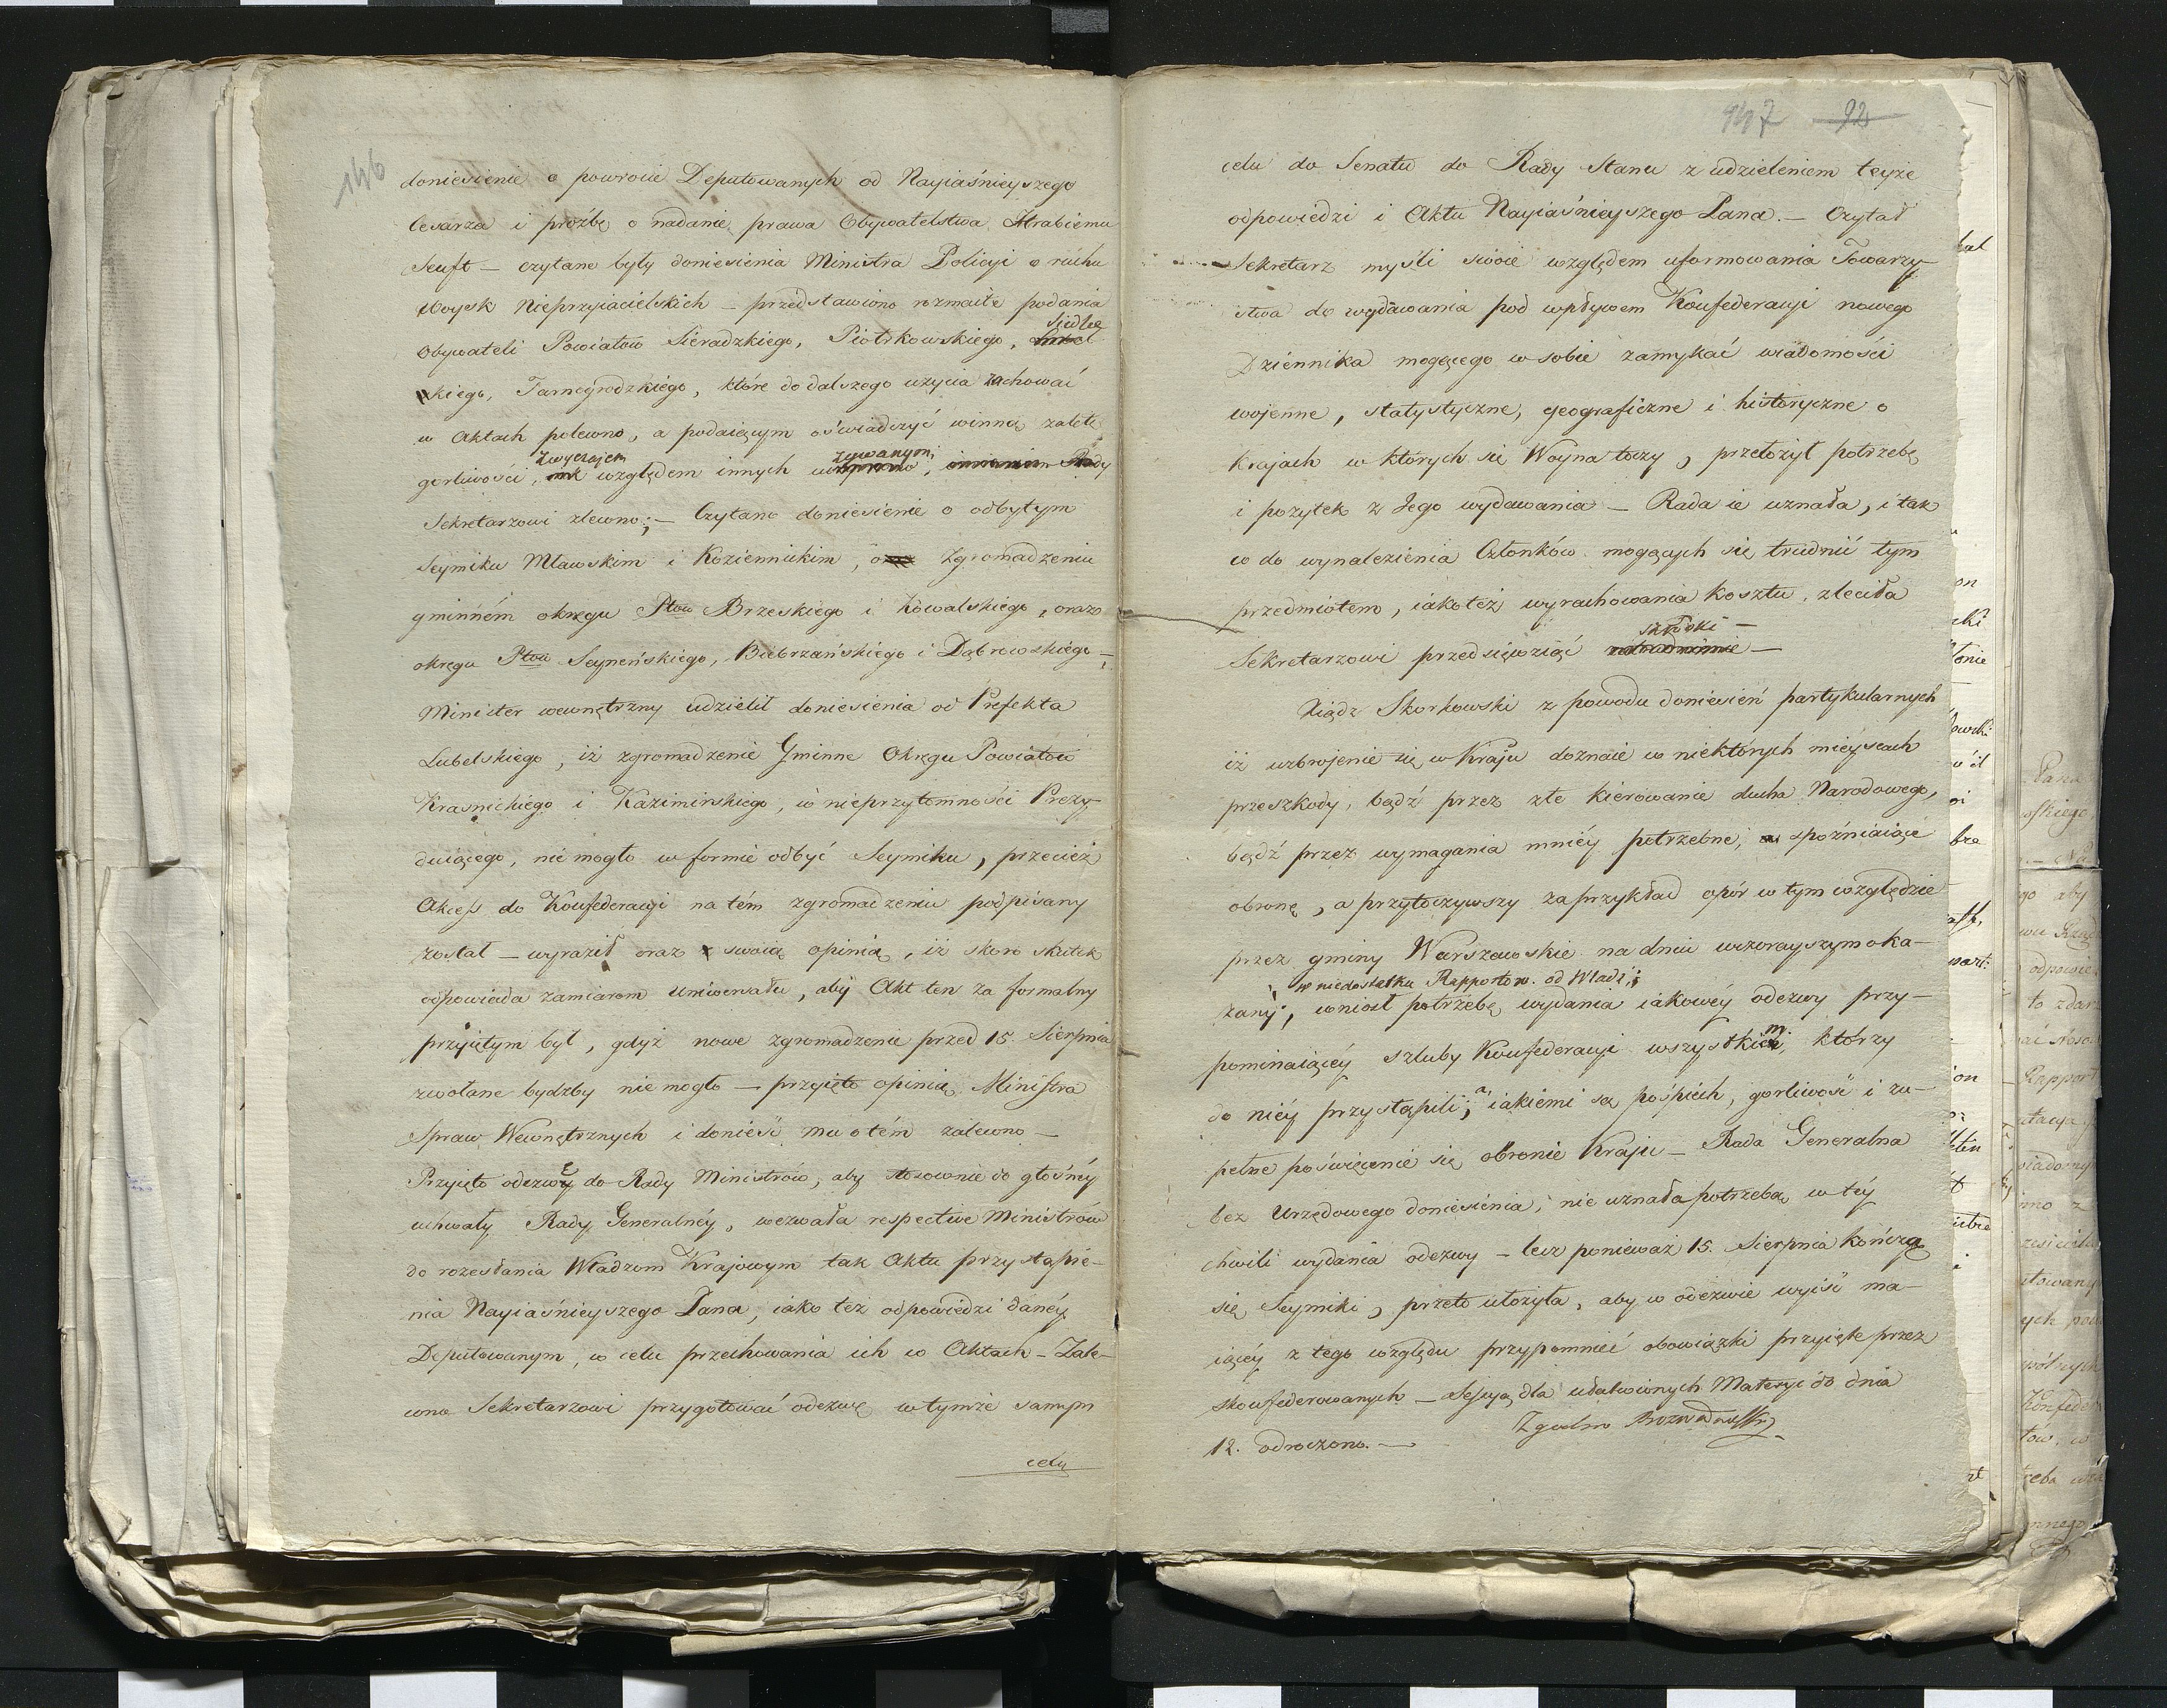 146
doniesienie o powrocie Deputowanych od Nayiaśnieyszego
Cesarza i proźbę o nadanie prawa Obywatelstwa Hrabiemu
Senft — czytane były doniesienia Ministra Policyi o ruchu
Woysk Nieprzyiacielskich — przedstawiono rozmaite podania
Siedlec
Obywateli Powiatów Sieradzkiego, Piotrkowskiego,
kiego, Tarnogrodzkiego, które do dalszego użycia zachować
w Aktach polecono, a podaiącym oświadczyć winną zaletę
zwyczajem zywanym
gorliwości, względem innych
Sekretarzowi zlecono; — Czytano doniesienie o odbytym
Seymiku Mławskim i Kozienickim, o zgromadzeniu
gminném okręgu Ptow Brzeskiego i Kowalskiego, oraz
okręgu Ptow Seyneńskiego, Biebrzańskiego i Dąbrowskiego —,
Minister wewnętrzny udzielił doniesienia od Prefekta
Lubelskiego, iż zgromadzenie Gminne Okręgu Powiatów
Krasnickiego i Kazimirskiego, w nieprzytomności Prezy-
duiącego, nie mogło w formie odbyć Seymiku, przecież
Akces do Konfederacyi na tém zgromadzeniu podpisany
został — wyraził oraz swoią opinią, iż skoro skutek
odpowiada zamiarom Uniwersału, aby Akt ten za formalny
przyiętym był, gdyż nowe zgromadzenie przed 15. Sierpnia
zwołane bydźby nie mogło — przyięto opinią Ministra
Spraw Wewnętrznych i donieść mu o tém zalecono —
Przyięto odezwę do Rady Ministrów, aby stosownie do głośnéy
uchwały Rady Generalnéy, wezwała respective Ministrów
do rozesłania Władzom Krajowym tak Aktu przystąpie-
nia Nayiaśnieyszego Pana, iako też odpowiedzi danéy
Deputowanym, w celu przechowania ich w Aktach — Zale-
cono Sekretarzowi przygotować odezwę w tymże samym
celu
147 92
celu do Senatu do Rady Stanu z udzieleniem teyże
odpowiedzi i Aktu Nayiaśnieyszego Pana. — Czytał
Sekretarz myśli swoie względem uformowania Towarzy-
stwa do wydawania pod wpływem Konfederacyi nowego
Dziennika mogącego w sobie zamykać wiadomości
wojenne, statystyczne, geograficzne i historyczne o
Krajach w których się Woyna toczy, przełożył potrzebę
i pożytek z Jego wydawania — Rada ie uznała, i tak
co do wynalezienia Członków mogących się trudnić tym
przedmiotem, iako też wyrachowania kosztu, zleciła
Sekretarzowi przedsięwziąć środki —
Xiądz Skorkowski z powodu doniesień partykularnych
iż uzbrojenie się w Kraju doznaie w niektórych mieyscach
przeszkody, bądź przez złe kierowanie ducha Narodowego,
bądź przez wymagania mniéy potrzebne, spoźniaiące
obronę, a przytoczywszy za przykład opór w tym względzie
przez gminy Warszawskie na dniu wczorayszym oka-
w niedostatku Rapportów od Władz;
zany, wniósł potrzebę wydania iakowéy odezwy przy-
pominaiącéy szluby Konfederacyi wszystkim, którzy
do niéy przystąpili, a iakiemi są pośpiech, gorliwość i zu-
pełne poświęcenie się obronie Kraju — Rada Generalna
bez Urzędowego doniesienia, nie uznała potrzebą w téy
chwili wydania odezwy — lecz ponieważ 15. Sierpnia kończą
się Seymiki, przeto ułożyła, aby w odezwie wyiść ma-
iącéy z tego względu przypomnieć obowiązki przyięte przez
skonfederowanych — Sessyą dla udalwionych Materyi do dnia
12. odroczono. —
Zgodno